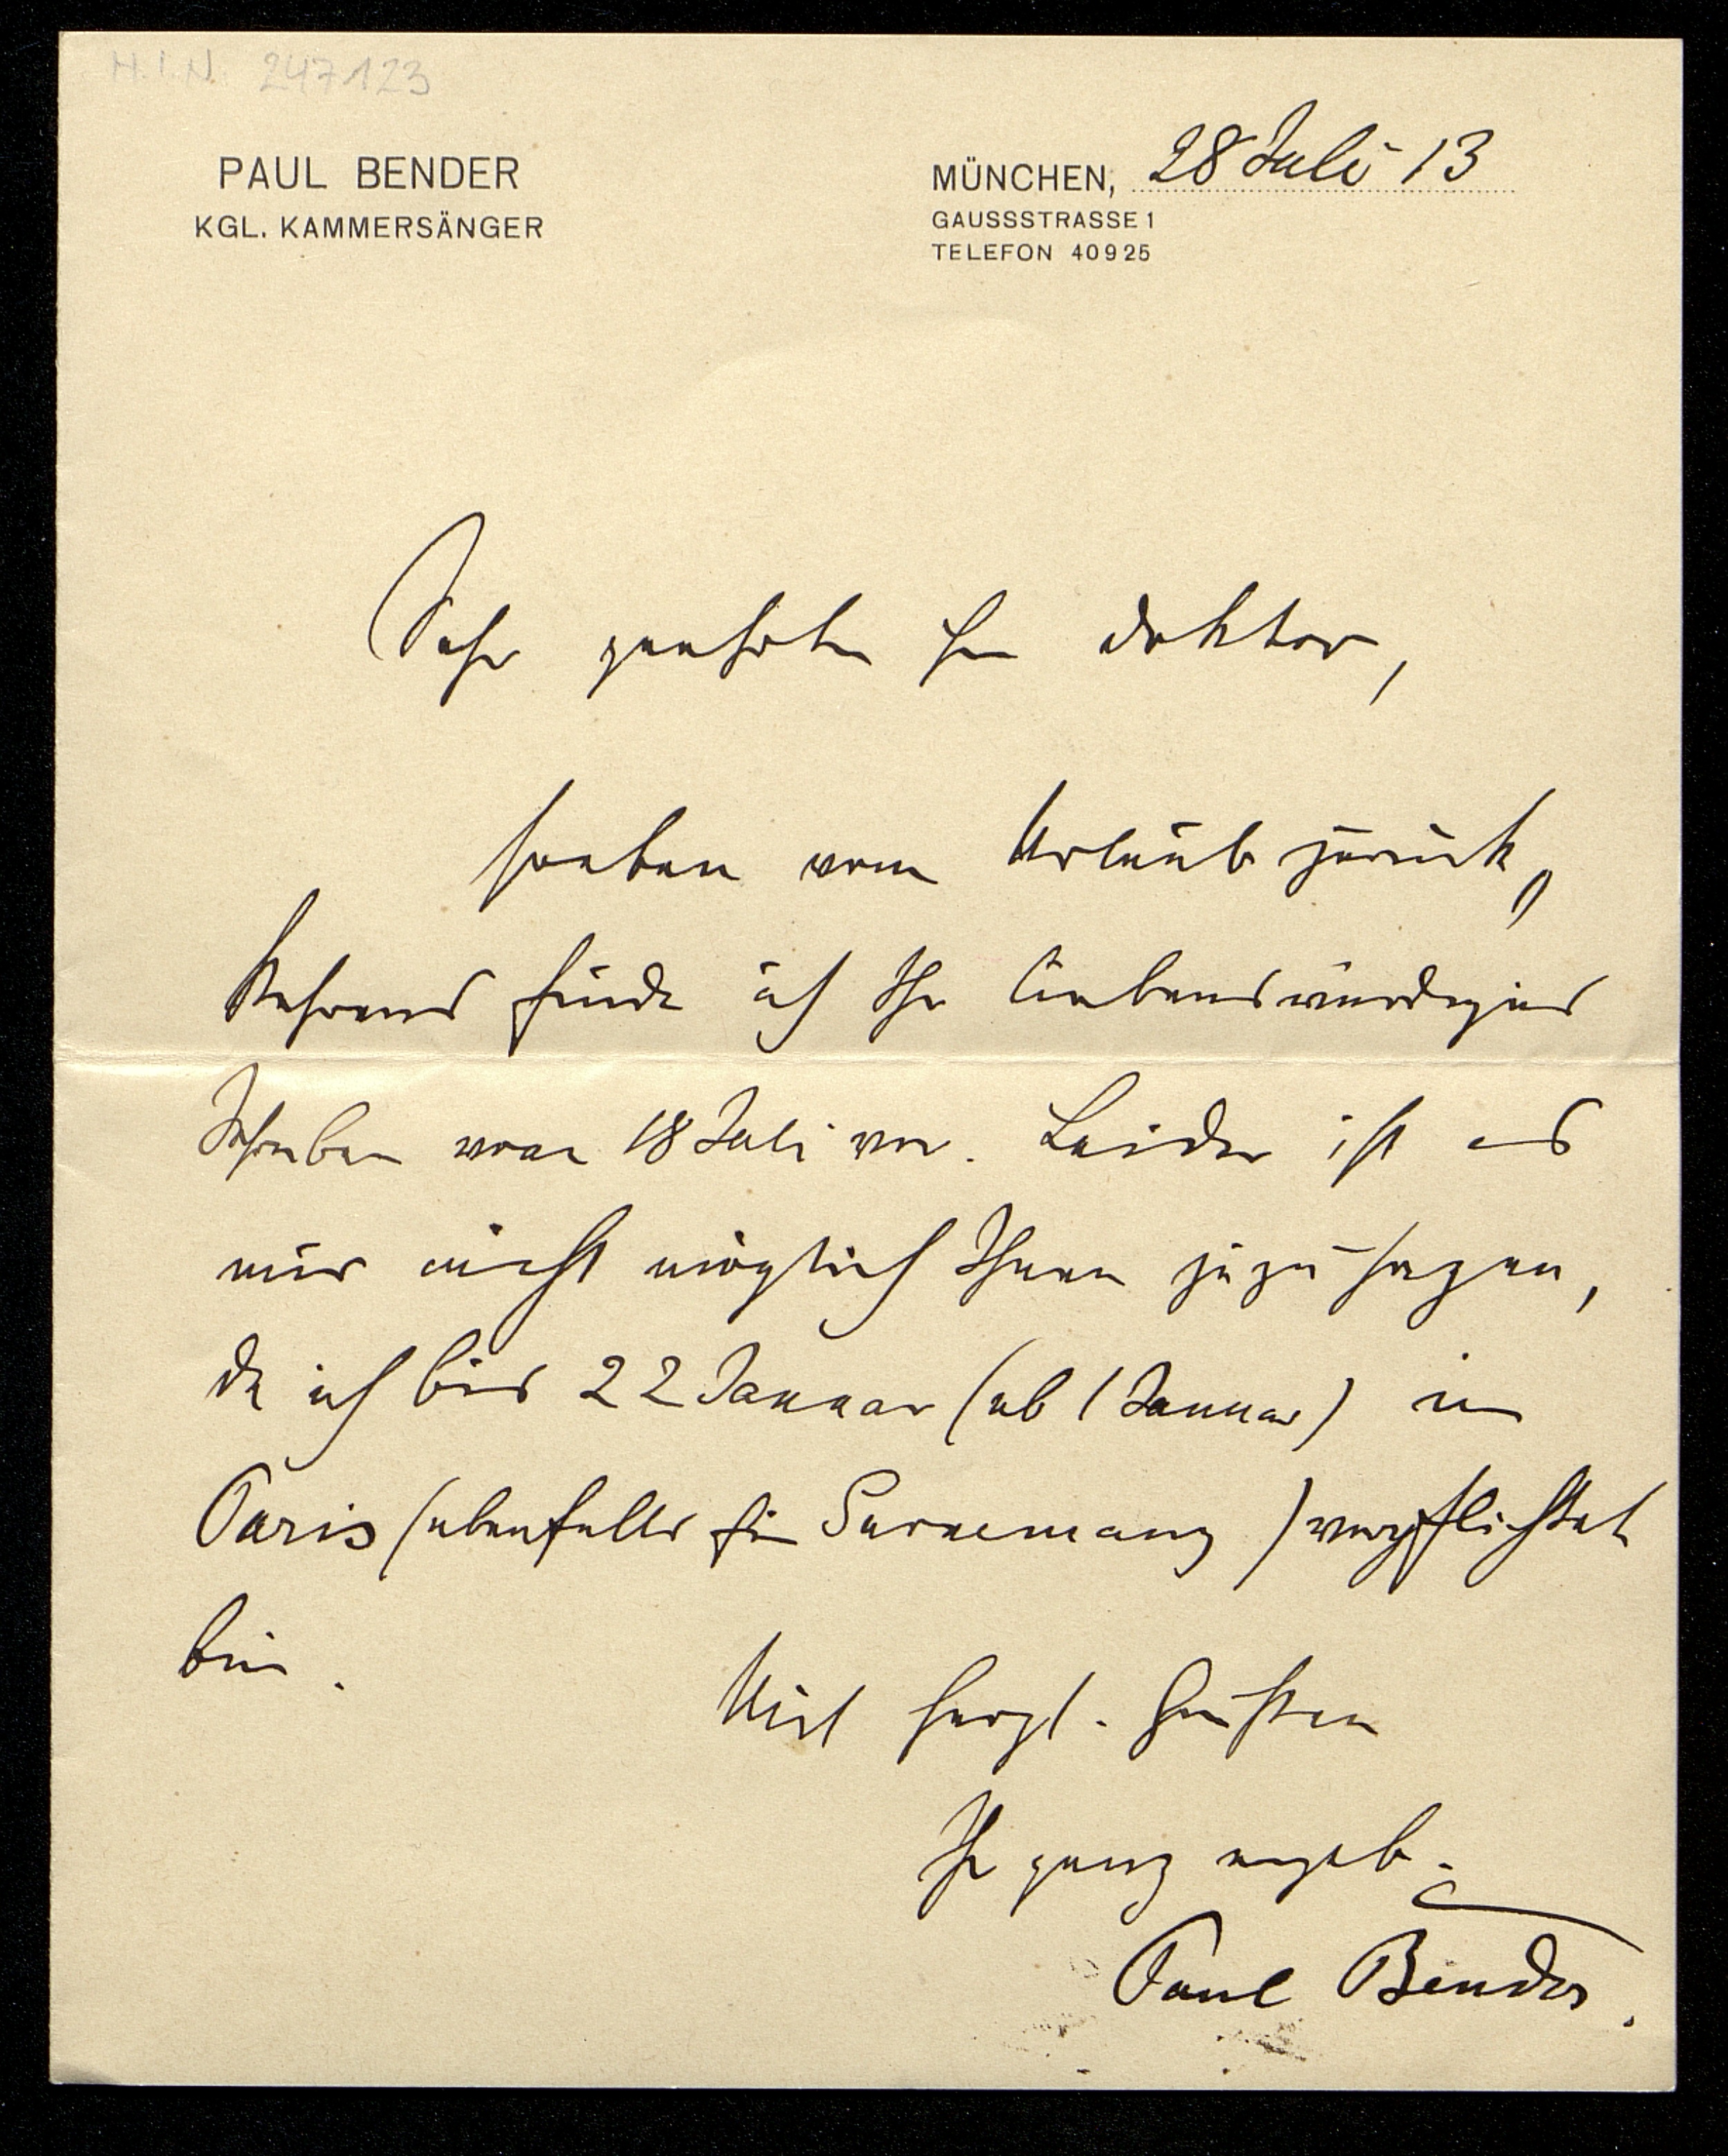 H.I.N. 247123
PAUL BENDER
KGL. KAMMERSÄNGER
MÜNCHEN, 28 Juli 13
GAUSSSTRASSE 1
TELEFON 40925
Sehr geehrter Herr Doktor,
soeben vom Urlaub zurück,
kehrend finde ich Ihr liebenswürdiges
Schreiben vom 18 Juli vor. Leider ist es
mir nicht möglich Ihnen zuzusagen,
da ich bis 22 Januar (ab 1 Januar) in
Paris (ebenfalls für Gurnemanz) verpflichtet
bin.
Mit herzl. Grüßen
Ihr ganz ergeb.
Paul Bender.